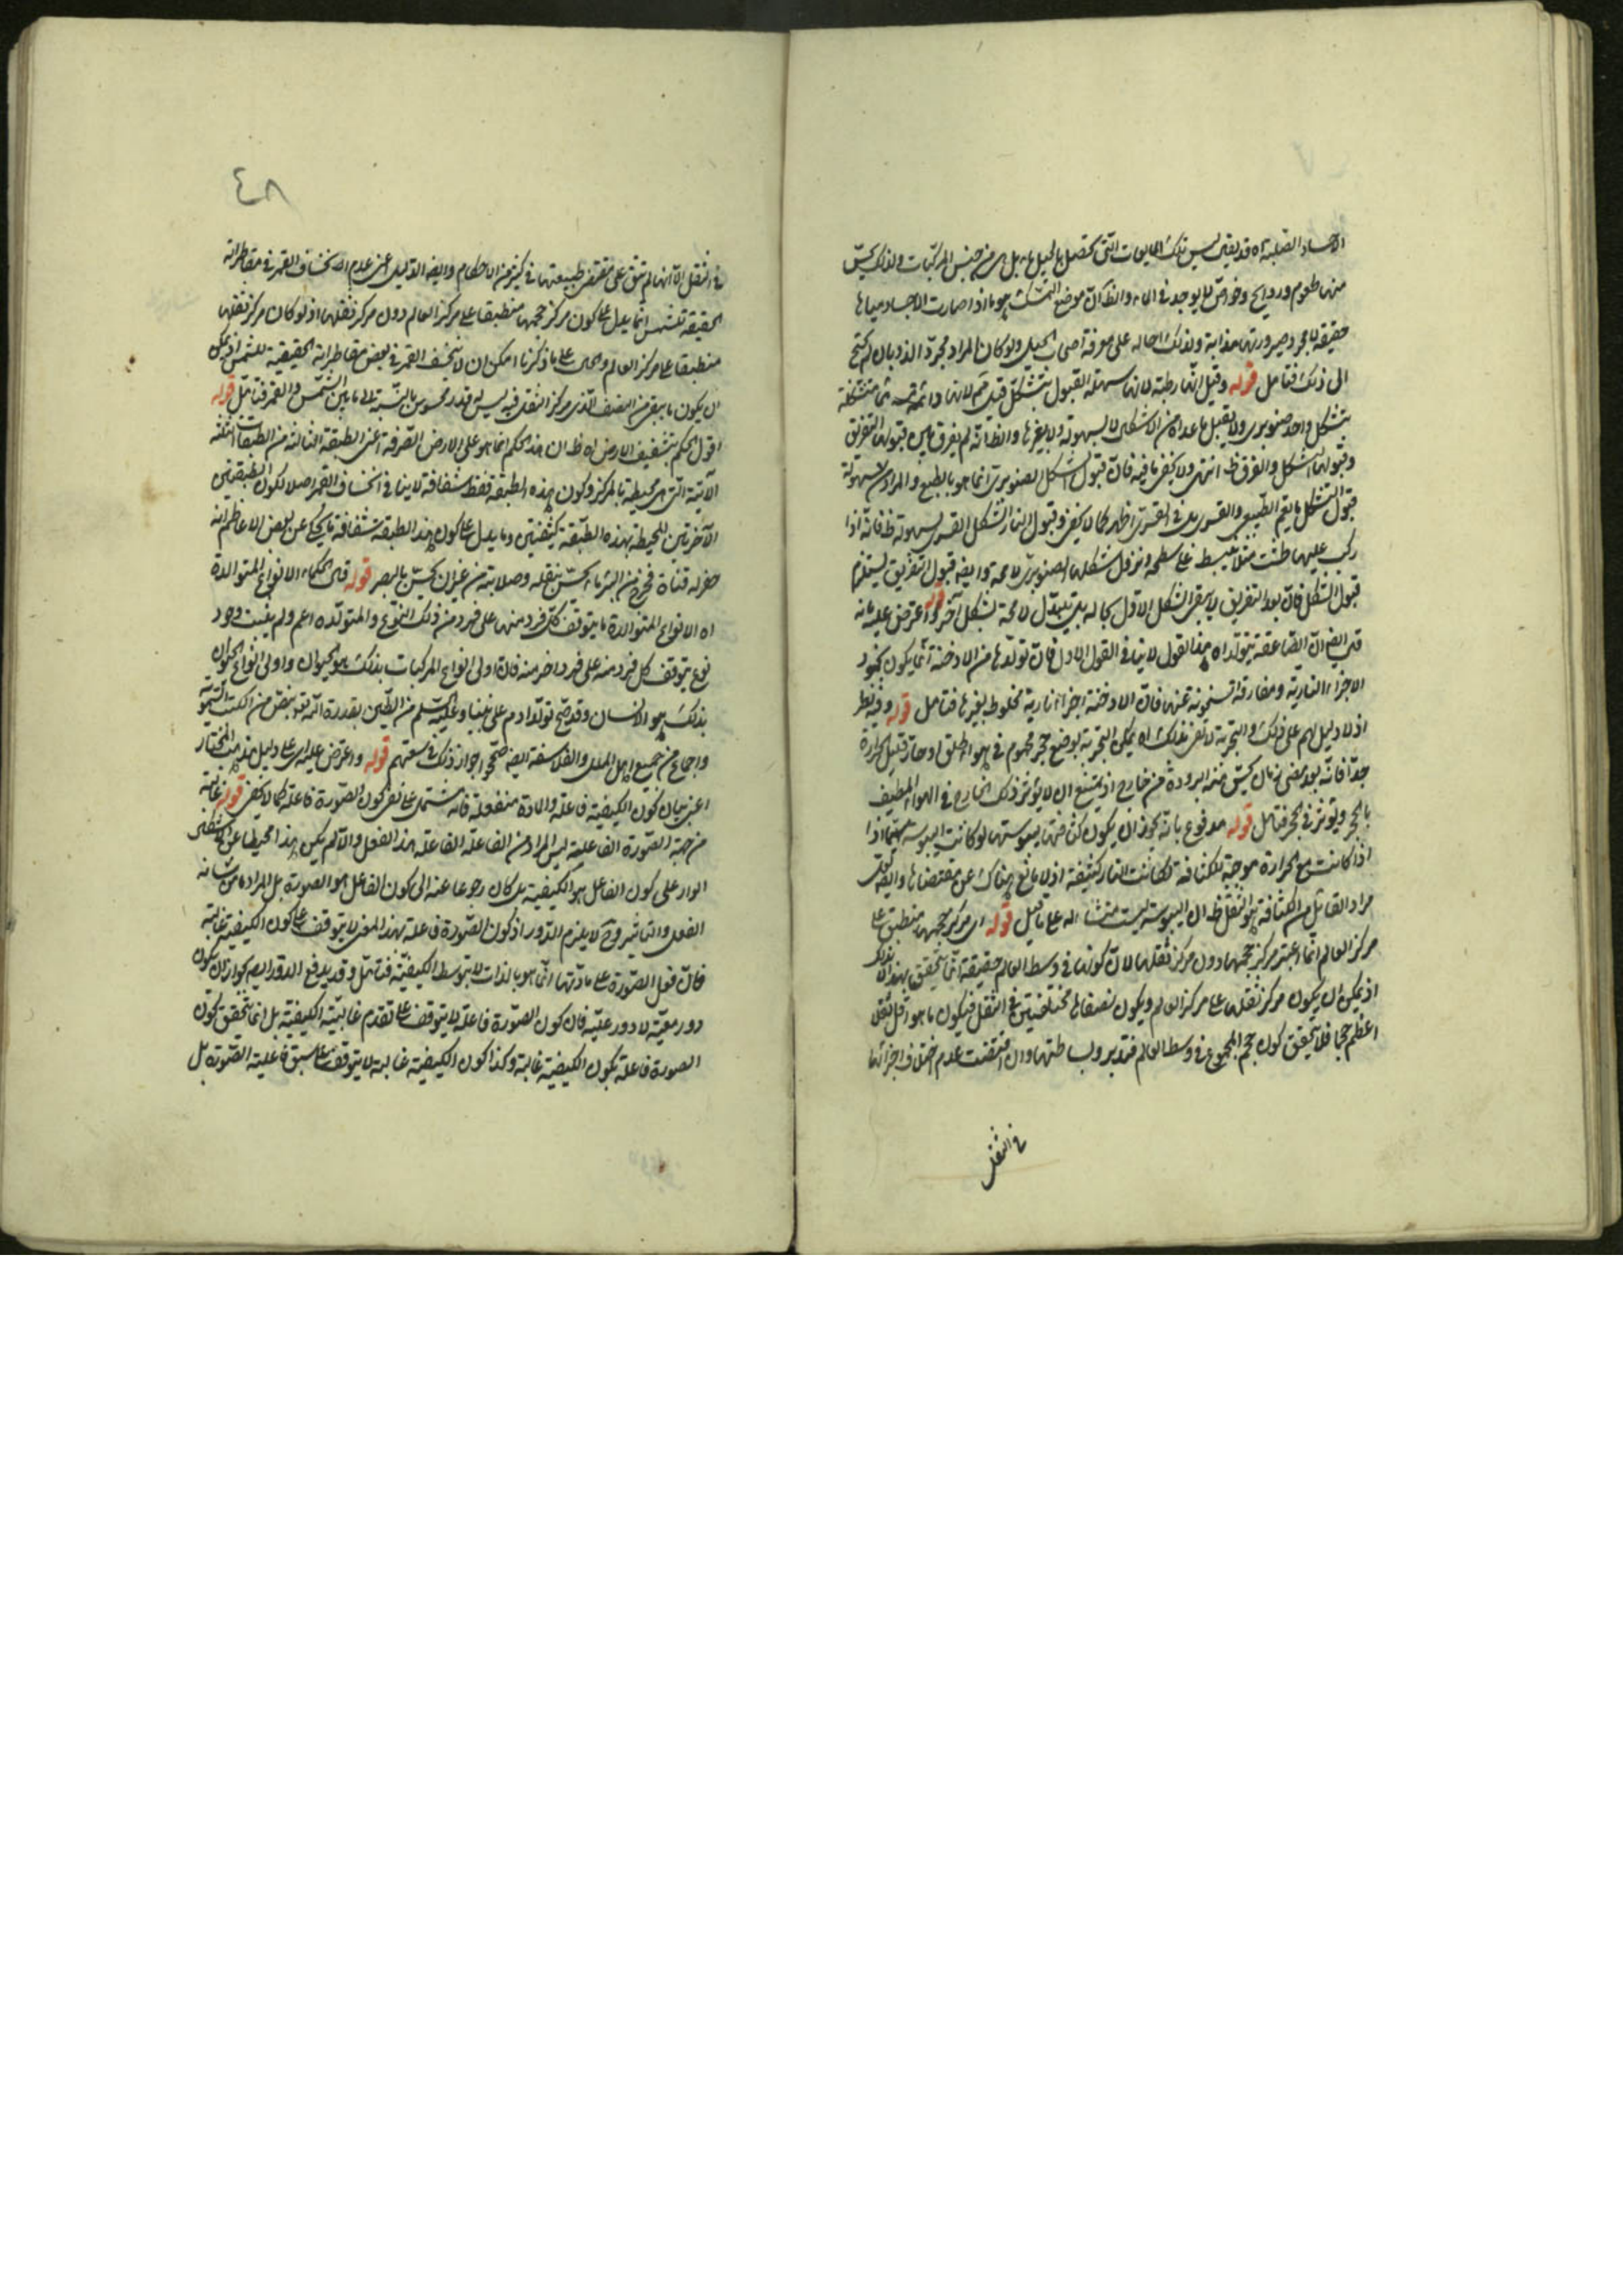 الاجساد الصلبة اه قد يقال ليس تلك المايعات التي تحصل بالحيل مياه بل هي من جنس المركبات ولذلك يحس
منها طعوم وروايح وخواص لا يوجد في الماء والظ ان موضع التمسك هو ما اذا صارت الاجساد مياها
حقيقة لا مجرد صيرورتها مذابة ولذلك احاله على معرفة اصحاب الحيل ولو كان المراد مجرد الذوبان لم يحتج
الى ذلك فتامل قوله وقيل انها رطبة لانها سهلة القبول للتشكل قيل لانها دائمة متشكلة
بشكل واحد صنوبري ولا يقبل ما عداه من الاشكال لا بسهولة ولا بغيرها والظ انه لم يفرق بين قبولها التفريق
وقبولها الشكل والفرق ظ انتهى ولا يخفى ما فيه فان قبول الشكل الصنوبري انما هو بالطبع والمراد من سهولة
قبول التشكل ما يعم الطبيعي والقسري بل في القسري اظهر كما لا يخفى وقبول النار الشكل القسري بسهولة ظ فانه اذا
ركب عليها طشت مثلا ينبسط على سطحه وتزول شكلها الصنوبري لا محة وايضا قبول التفريق يستلزم
قبول الشكل فان بعد التفريق لا يبقى الشكل الاول بحاله بل يتبدل لا محة بشكل آخر قوله واعترض عليه بانه
قيل ايضا ان الصاعقة تتولد اه هذا القول لا ينافي القول الاول فان تولدها من الادخنة انما يكون بخمود
الاجزاء النارية ومفارقة السخونة عنها فان الادخنة اجزاء نارية مخلوط بغيرها فتامل قوله وفيه نظر
اذ لا دليل لهم على ذلك والتجربة لا تفي بذلك اه يمكن التجربة بوضع حجر محموم في هواء طلق او حار قليل الحرارة
جدا فانه بعد مضي زمان يحس منه البرودة من خارج اذ يمتنع ان لا يؤثر ذلك الخارج في الهواء اللطيف
بالحجر ويؤثر في الحجر فتامل قوله مدفوع بانه يجوز ان يكون كثافتها يبوستها لو كانت اليبوسة سيما اذا
اذا كانت مع الحرارة موجبة للكثافة لكانت النار كثيفة اذ لا مانع هناك عن مقتضاها وايضا لعل
مراد القائل من الكثافة هو الثقل ظ ان اليبوسة ليست منشاء له على ما قيل قوله اي مركز حجمها منطبق على
مركز العالم انما اعتبر مركز حجمها دون مركز ثقلها لان كونها في وسط العالم حقيقة انما يتحقق بهذا لا بذاك
اذ يمكن ان يكون مركز ثقلها على مركز العالم ويكون نصفاها مختلفين في الثقل فيكون ما هو اقل ثقلا
اعظم حجما فلا يتحقق كون حجم المجموع في وسط العالم فتدبر وبساطتها وان اقتضت عدم اختلاف اجزائها
في الثقل
٤٨
في الثقل الا انها لم تبق على مقتضى طبيعتها في كثير من الاحكام وايضا الدليل اعني عدم الانخساف القمر في مقاطراته
الحقيقية للشمس انما يدل على كون مركز حجمها منطبقا على مركز العالم دون مركز ثقلها اذ لو كان مركز ثقلها
منطبقا على مركز العالم والحال على ما ذكرنا امكن ان لا ينخسف القمر في بعض مقاطراته الحقيقية للشمس اذ يمكن
ان يكون ما يبقى من النصف الذي مركز الثقل فيه ليس له قدر محسوس بالنسبة الى ما بين الشمس والقمر فتامل قوله
اقول الحكم بتشفيف الارض اه ظ ان هذا الحكم انما هو على الارض الصرفة اعني الطبقة الثالثة من الطبقات الثلثة
الآتية التي هي محيطة بالمركز وكون هذه الطبقة فقط شفافة لا ينافي انخساف القمر اصلا لكون الطبقتين
الآخرتين المحيطة بهذه الطبقة كثيفتين وما يدل على كون هذه الطبقة شفافة ما يحكى عن بعض الاعاظم انه
حفر له قناة فخرج من البئر ماء يحس بثقله وصلابته من غير ان يحس بالبصر قوله قال الحكماء الانواع المتوالدة
اه الانواع المتوالدة ما يتوقف كل فرد منها على فرد من ذلك النوع والمتولدة اعم ولم يثبت وجود
نوع يتوقف كل فرد منه على فرد اخر منه فان اولى انواع المركبات بذلك هو الحيوان واولى انواع الحيوان
بذلك هو الانسان وقد صح تولد ادم على نبينا وعليه السلم من الطين بقدرة الله تعالى بنص من الكتب السماوية
واجماع من جميع اهل الملل والفلاسفة ايضا صححوا جواز ذلك في سعتهم قوله واعترض عليه اي على دليل هذا المختار
اعني بيان كون الكيفية فاعلة والمادة منفعلة فانه مشتمل على نفي كون الصورة فاعلة كما لا يخفى قوله غالبة
من جهة الصورة الفاعلية ليس المراد من الفاعلة الفاعلة هذا الفعل والا لم يكن هذا محيطا عن الاشكال
الوارد على كون الفاعل هو الكيفية بل كان رجوعا عنه الى كون الفاعل هو الصورة بل المراد ما من شانه
الفعل والتاثير وح لا يلزم الدور اذ كون الصورة فاعلة بهذا المعنى لا يتوقف على كون الكيفية غالبة
فان فعل الصورة على مادتها انما هو بالذات لا بتوسط الكيفية فتامل وقد يدفع الدور ايضا بجواز ان يكون
دور معية لا دور علية فان كون الصورة فاعلة لا يتوقف على تقدم غالبية الكيفية بل انما يتحقق بكون
الصورة فاعلة بكون الكيفية غالبة وكذا كون الكيفية غالبة لا يتوقف على سبق فاعلية الصورة بل